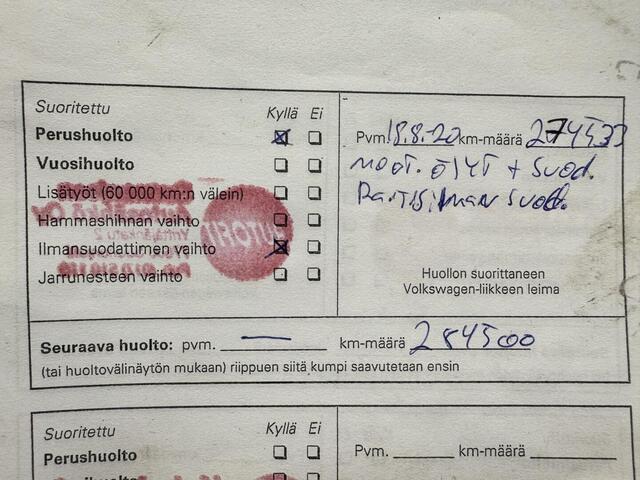 Suoritettu Kyllä Ei
Perushuolto
Vuosihuolto
Lisätyöt (60 000 km:n välein)
Hammashihnan vaihto
Ilmansuodattimen vaihto
Jarrunesteen vaihto
Pvm. 18.8.20 km-määrä 274533
moot. öljyt + suod.
raitisilman suod.
Huollon suorittaneen
Volkswagen-liikkeen leima
Seuraava huolto: pvm. — km-määrä 284500
(tai huoltovälinäytön mukaan) riippuen siitä kumpi saavutetaan ensin
Suoritettu Kyllä Ei
Perushuolto
Pvm. km-määrä